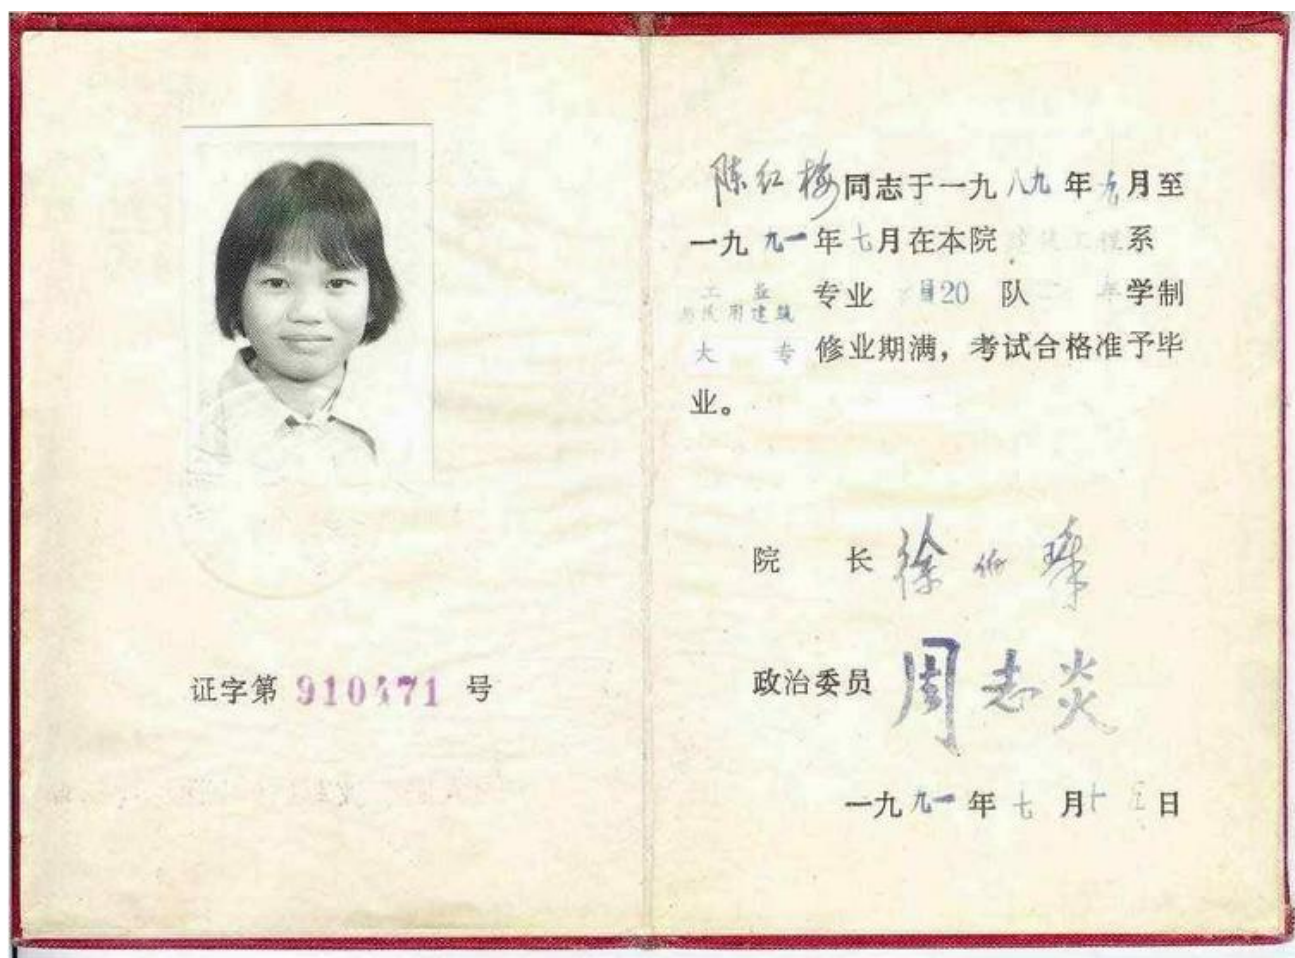 证字第 910471 号
陈红梅同志于一九八九年九月至
一九九一年七月在本院建筑工程系
工业
与民用建筑 专业 学员20 队二年学制
大专 修业期满，考试合格准予毕
业。
院 长 徐
政治委员 周志炎
一九九一年七月十 日